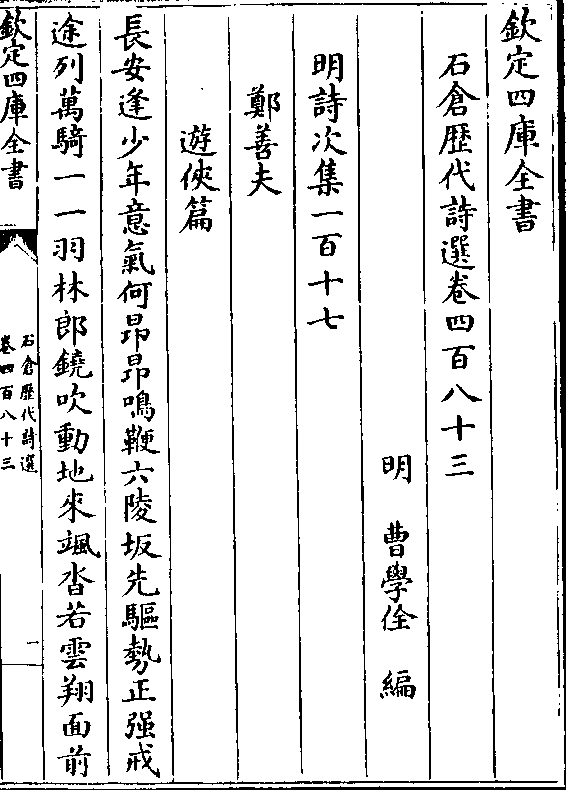 欽定四庫全書
石倉歷代詩選卷四百八十三
明 曹學佺 編
明詩次集一百十七
鄭善夫
遊俠篇
長安逢少年意氣何昂昂鳴鞭六陵坂先驅勢正强戒
途列萬騎一一羽林郎鐃吹動地來颯沓若雲翔面前
欽定四庫全書
石倉歷代詩選
卷四百八十三
一